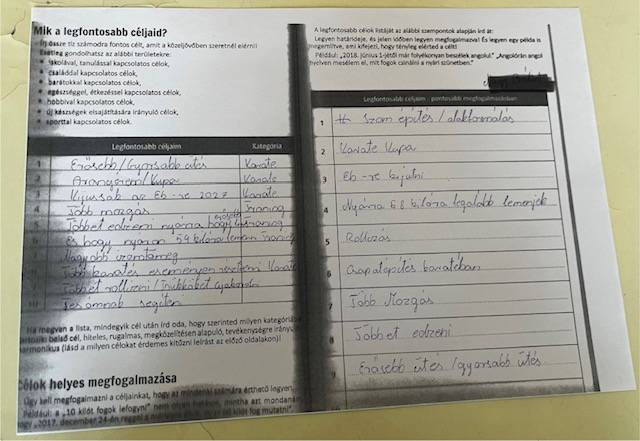 Mik a legfontosabb céljaid?
Írj össze tíz számodra fontos célt, amit a közeljövőben szeretnél elérni!
Esetleg gondolhatsz az alábbi területekre:
iskolával, tanulással kapcsolatos célok,
családdal kapcsolatos célok,
barátokkal kapcsolatos célok,
egészséggel, étkezéssel kapcsolatos célok,
hobbival kapcsolatos célok,
új készségek elsajátítására irányuló célok,
sporttal kapcsolatos célok.
Legfontosabb céljaim Kategória
1 Erősebb/Gyorsabb ütés Karate
2 Aranyérem/Kupa Karate
3 Kijussak az Eb-re 2027 Karate
4 Több mozgás Training
5 Többet edzeni nyáron, hogy erősebb
És hogy nyáron 59 kilóra
Nagyobb izomtömeg
Több karatés eseményen részt venni Karate
Többet rollizni/trükköket
10 segíteni
Ha megvan a lista, mindegyik cél után írd oda, hogy szerinted milyen kategóriába
tartozik: belső cél, hiteles, rugalmas, megközelítésen alapuló, tevékenységre irányuló,
harmonikus (lásd a milyen célokat érdemes kitűzni leírást az előző oldalakon)!
Célok helyes megfogalmazása
Úgy kell megfogalmazni a céljainkat, hogy az mindenki számára érthető legyen.
Például: a „10 kilót fogok lefogyni" nem olyan hatásos, mintha azt mondanám,
hogy „2017. december 24-én reggel a mérleg kilót fog mutatni".
A legfontosabb célok listáját az alábbi szempontok alapján írd át:
Legyen határideje, és jelen időben legyen megfogalmazva! És legyen egy példa is
megemlítve, ami kifejezi, hogy tényleg elérted a célt!
Például: „2018. június 1-jétől már folyékonyan beszélek angolul." „Angolórán angol
nyelven mesélem el, mit fogok csinálni a nyári szünetben."
Legfontosabb céljaim - pontosabb megfogalmazásban
1 Izom építés/alakformálás
2 Karate Kupa
3 Eb-re kijutni
4 Nyárra 68 kilóra legalább lemenjek
5 Rollizás
6 Csapatépítés karatéban
7 Több Mozgás
8 Többet edzeni
9 Erősebb ütés/gyorsabb ütés